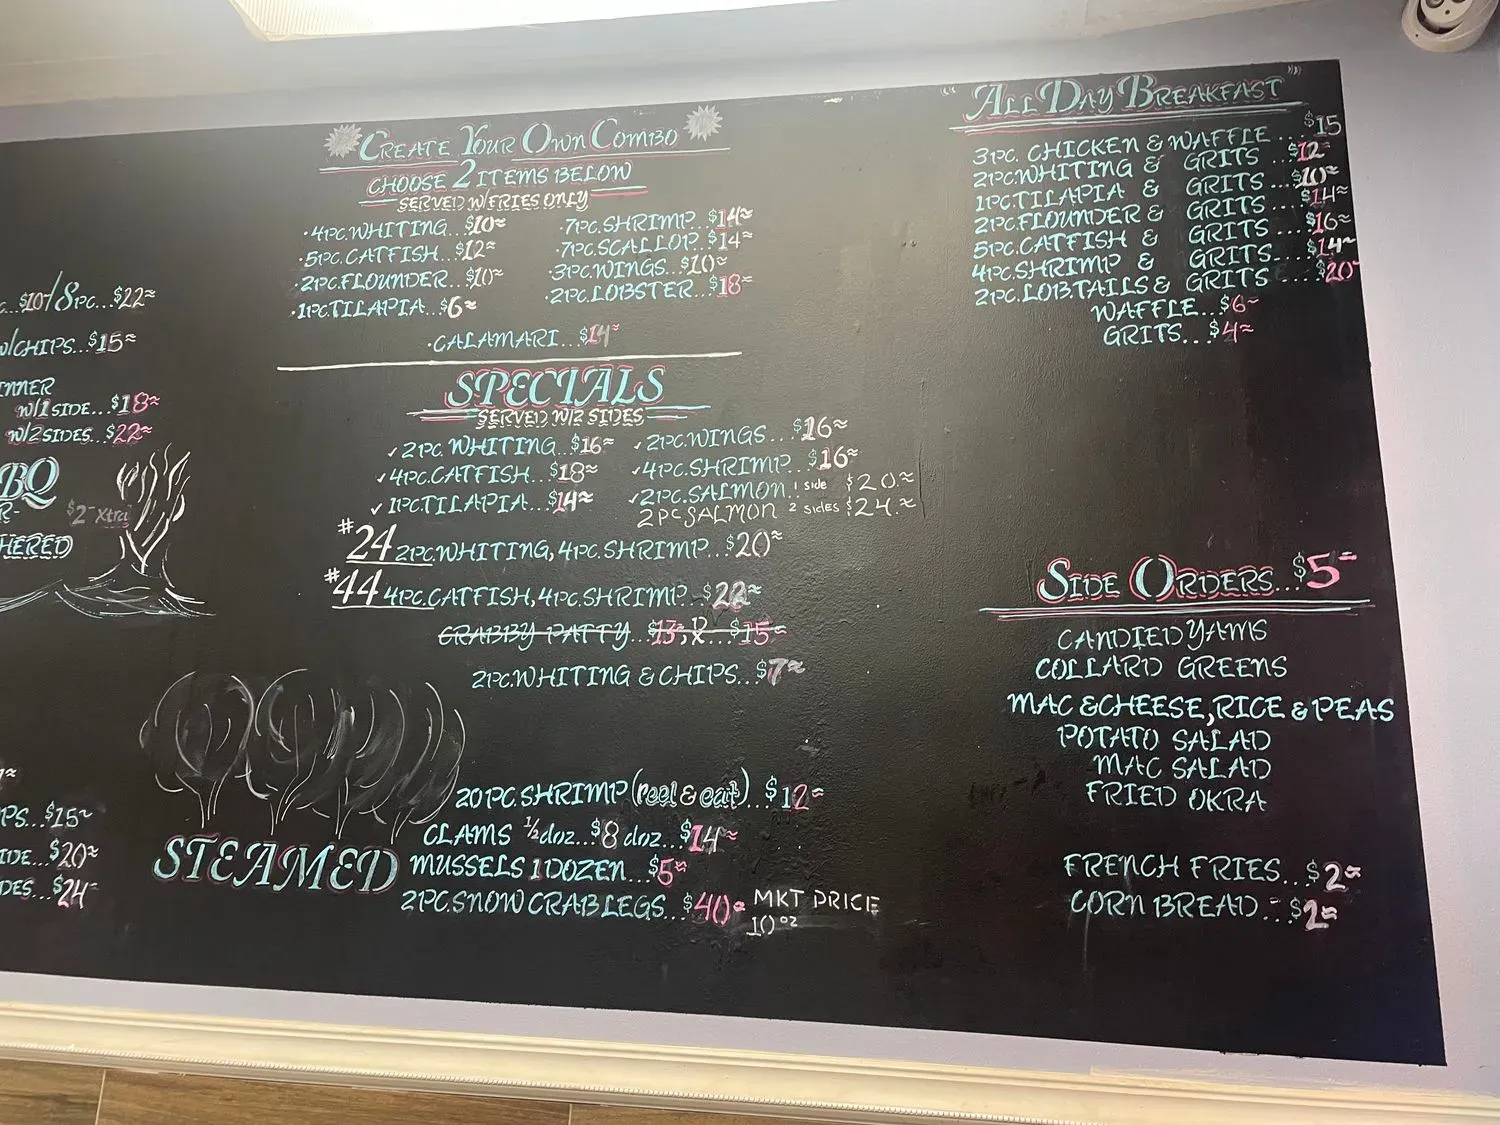 ...$10/8PC...$22
W/CHIPS...$15
W/1 SIDE...$18
W/2 SIDES...$22
BQ
$2- Xtra
HERED
PS...$15
IDE...$20
DES...$24
CREATE YOUR OWN COMBO
CHOOSE 2 ITEMS BELOW
SERVED W/FRIES ONLY
·4PC.WHITING...$10
·5PC.CATFISH...$12
·2PC.FLOUNDER...$10
·1PC.TILAPIA...$6
·7PC.SHRIMP...$14
·7PC.SCALLOP...$14
·3PC.WINGS...$10
·2PC.LOBSTER...$18
·CALAMARI...$14
SPECIALS
SERVED W/2 SIDES
✓2PC.WHITING...$16
✓4PC.CATFISH...$18
✓1PC.TILAPIA...$14
✓2PC.WINGS...$16
✓4PC.SHRIMP...$16
✓2PC.SALMON 1 side $20.
2PC SALMON 2 sides $24.
#24 2PC.WHITING, 4PC.SHRIMP...$20
#44 4PC.CATFISH, 4PC.SHRIMP...$22
CRABBY PATTY...$13, 12...$15
2PC.WHITING & CHIPS...$7
STEAMED
20PC.SHRIMP (peel & eat)...$12
CLAMS ½ doz...$8 doz...$14
MUSSELS 1 DOZEN...$5
2PC.SNOW CRAB LEGS...$40 MKT PRICE
10 oz
"ALL DAY BREAKFAST"
3PC. CHICKEN & WAFFLE...$15
2PC.WHITING & GRITS...$12
1PC.TILAPIA & GRITS...$10
2PC.FLOUNDER & GRITS...$14
5PC.CATFISH & GRITS...$16
4PC.SHRIMP & GRITS...$14
2PC.LOB.TAILS & GRITS....$20
WAFFLE...$6
GRITS...$4
SIDE ORDERS...$5
CANDIED YAMS
COLLARD GREENS
MAC & CHEESE, RICE & PEAS
POTATO SALAD
MAC SALAD
FRIED OKRA
FRENCH FRIES...$2
CORN BREAD...$2